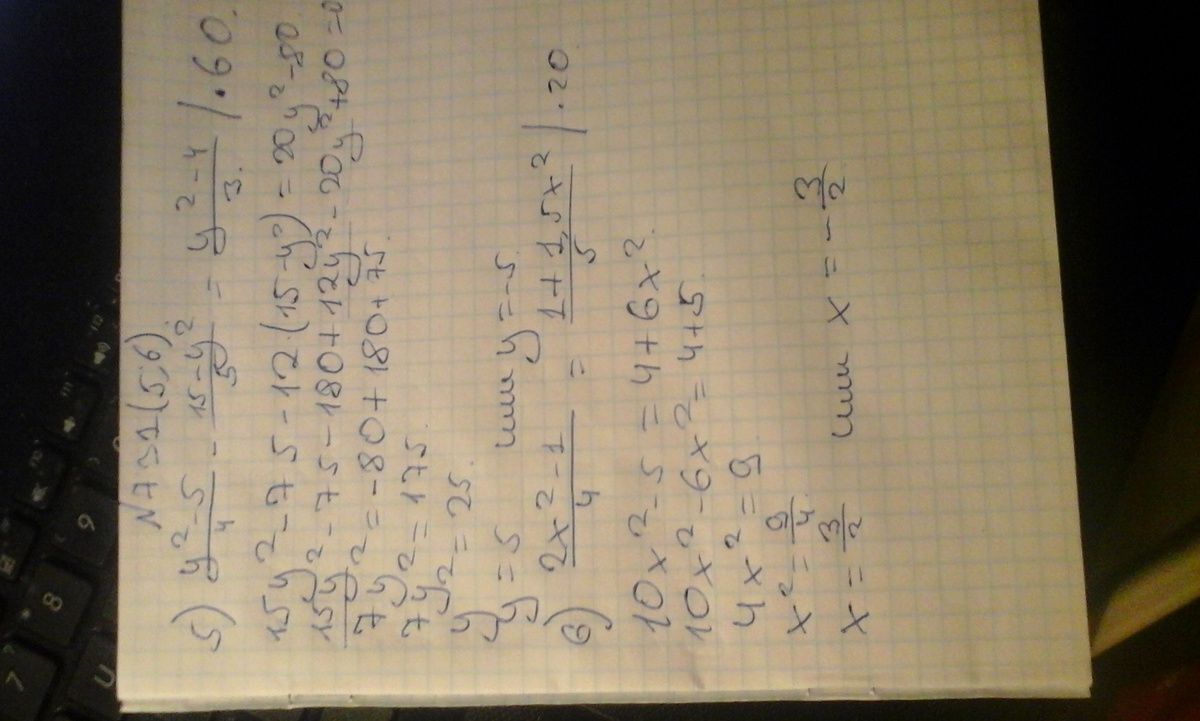 N731(5;6)
5) (y²-5)/4 - (15-y²)/5 = (y²-4)/3. /·60.
15y²-75-12·(15-y²)=20y²-80.
15y²-75-180+12y²-20y²+80=0
7y²=-80+180+75.
7y²=175.
y²=25.
y=5 или y=-5.
6) (2x²-1)/4 = (1+1,5x²)/5 /·20
10x²-5=4+6x².
10x²-6x²=4+5.
4x²=9.
x²=9/4.
x=3/2 или x=-3/2